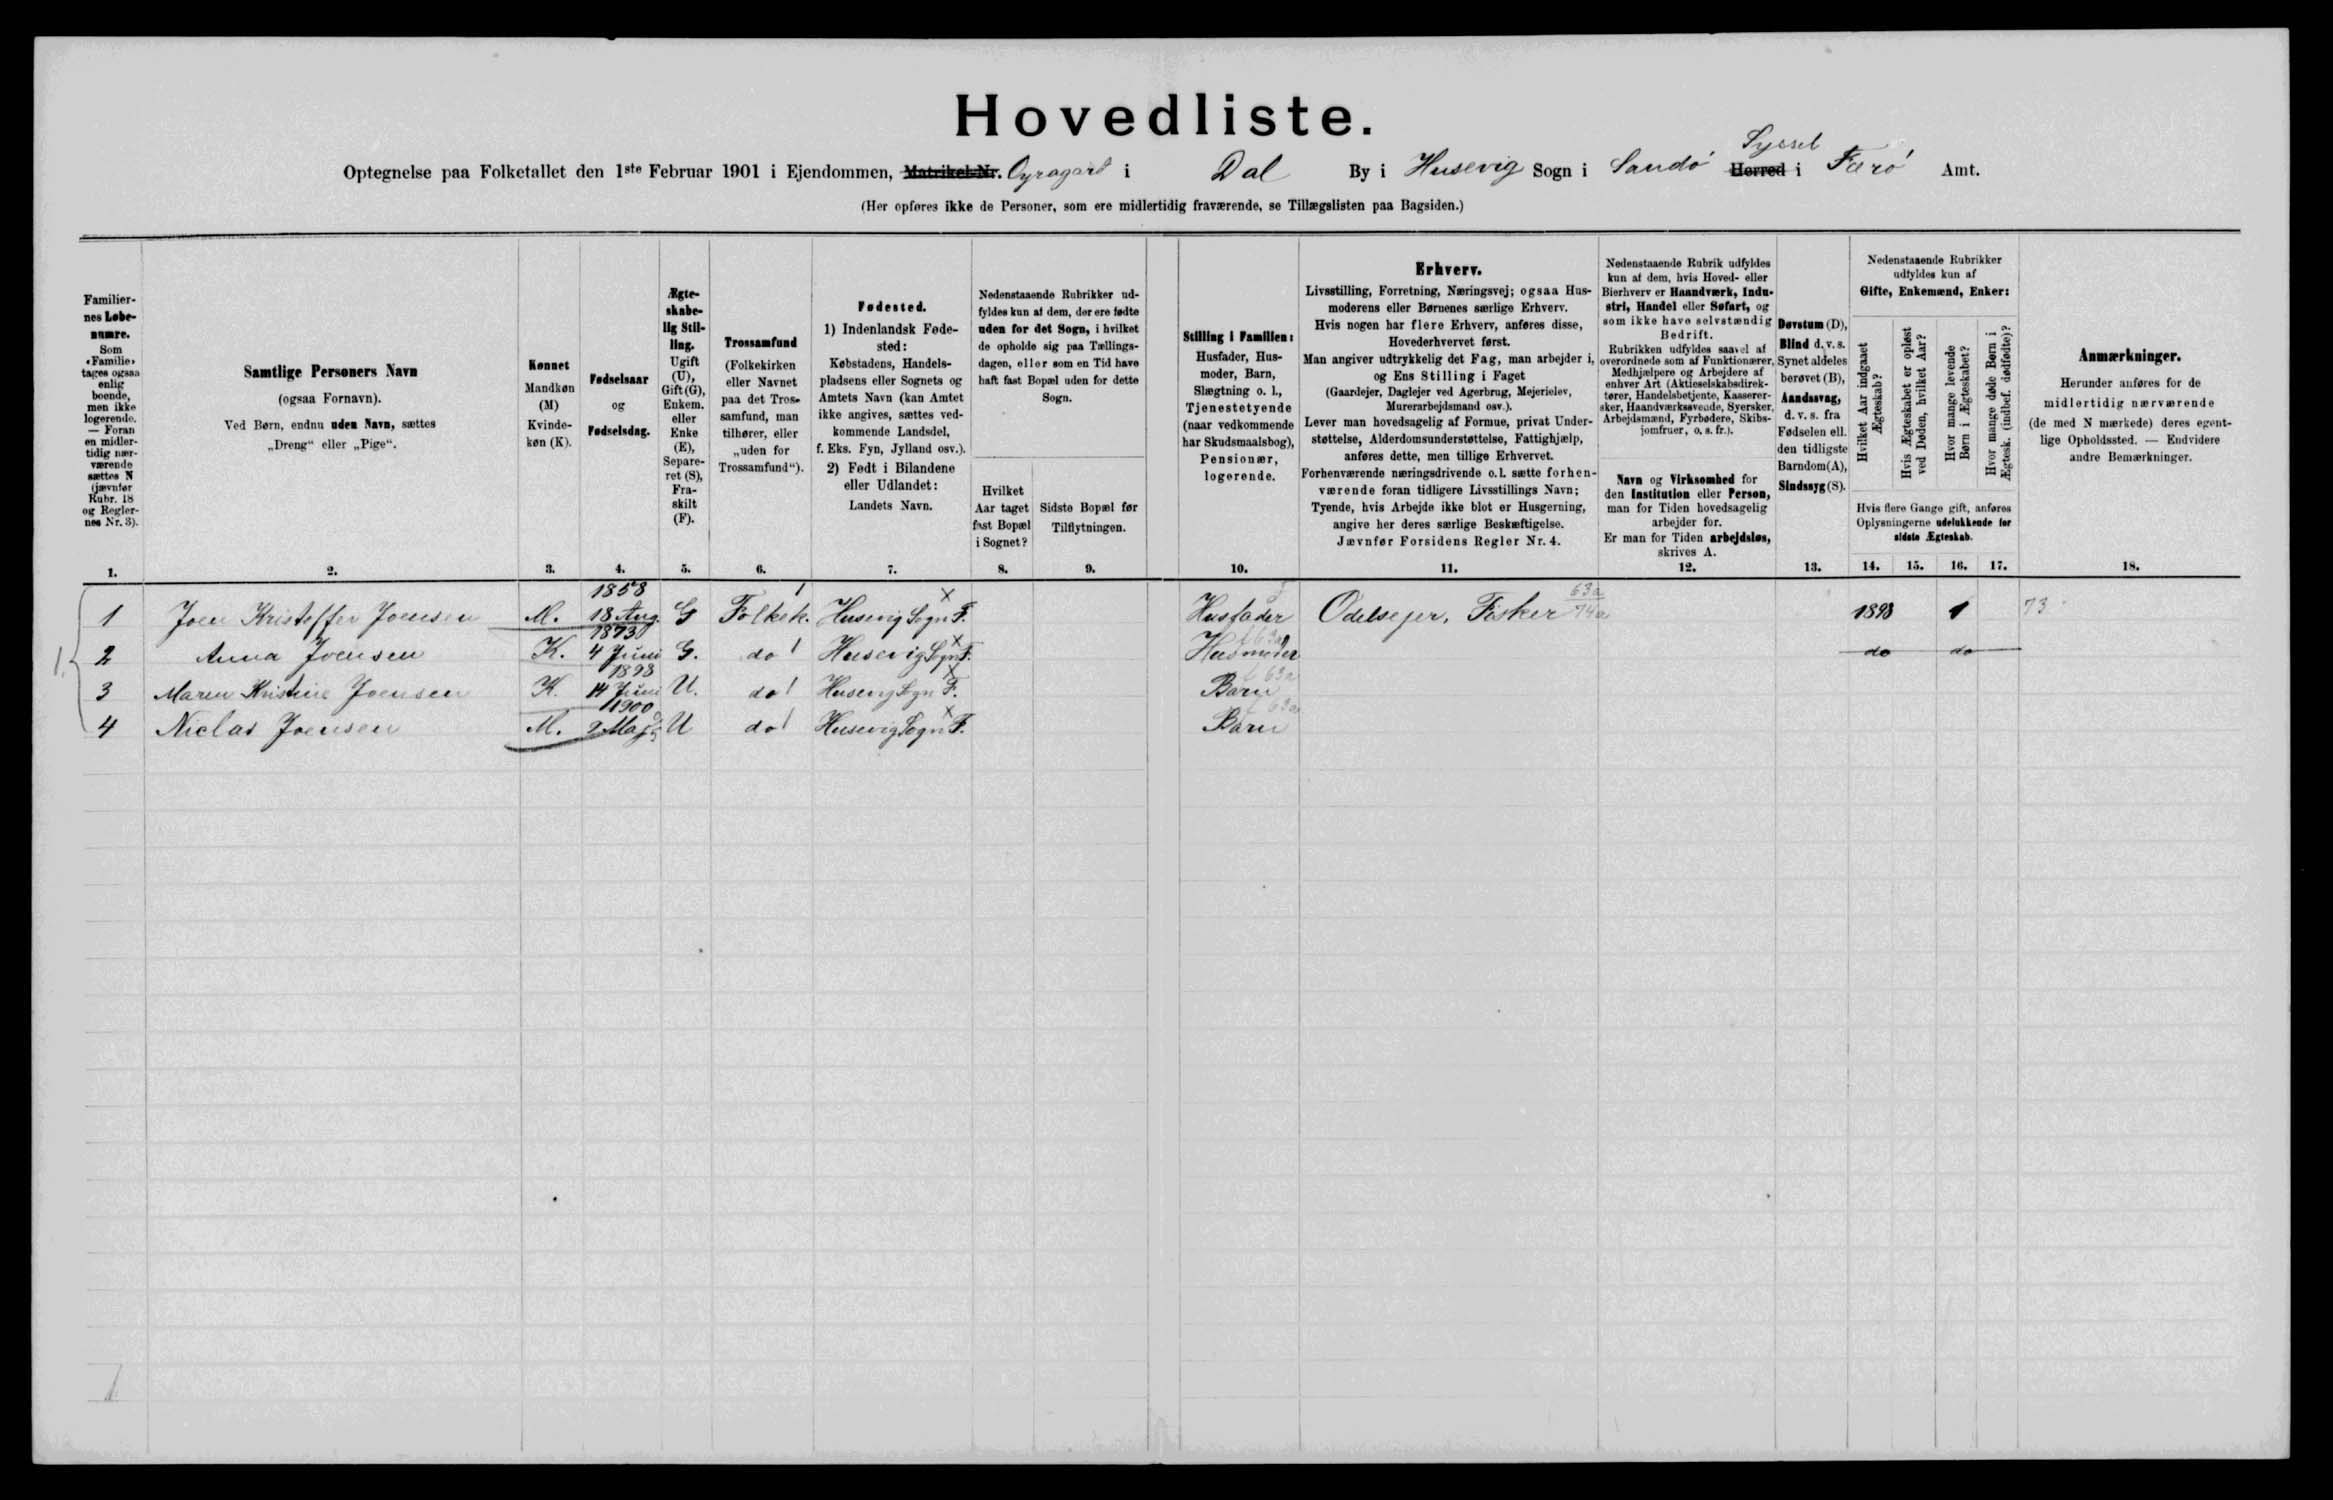 Hovedliste.
Syssel
Optegnelse paa Folketallet den 1ste Februar 1901 i Ejendommen, Matrikel-Nr. Oyragard i Dal By i Husevig Sogn i Sandø Herred i Færø Amt.
(Her opføres ikke de Personer, som ere midlertidig fraværende, se Tillægslisten paa Bagsiden.)
Familier-
nes Løbe-
numre.
Som
«Familie»
tages ogsaa
enlig
boende,
men ikke
logerende.
— Foran
en midler-
tidig nær-
værende
sættes N
(jævnfør
Rubr. 18
og Regler-
nes Nr. 3).
1.
Samtlige Personers Navn
(ogsaa Fornavn).
Ved Børn, endnu uden Navn, sættes
„Dreng“ eller „Pige“.
2.
Kønnet
Mandkøn
(M)
Kvinde-
køn (K).
3.
Fødselsaar
og
Fødselsdag.
4.
Ægte-
skabe-
lig Stil-
ling.
Ugift
(U),
Gift (G),
Enkem.
eller
Enke
(E),
Separe-
ret (S),
Fra-
skilt
(F).
5.
Trossamfund
(Folkekirken
eller Navnet
paa det Tros-
samfund, man
tilhører, eller
„uden for
Trossamfund“).
6.
Fødested.
1) Indenlandsk Føde-
sted:
Købstadens, Handels-
pladsens eller Sognets og
Amtets Navn (kan Amtet
ikke angives, sættes ved-
kommende Landsdel,
f. Eks. Fyn, Jylland osv.).
2) Født i Bilandene
eller Udlandet:
Landets Navn.
7.
Nedenstaaende Rubrikker ud-
fyldes kun af dem, der ere fødte
uden for det Sogn, i hvilket
de opholde sig paa Tællings-
dagen, eller som en Tid have
haft fast Bopæl uden for dette
Sogn.
Hvilket
Aar taget
fast Bopæl
i Sognet?
8.
Sidste Bopæl før
Tilflytningen.
9.
Stilling i Familien:
Husfader, Hus-
moder, Barn,
Slægtning o. l.,
Tjenestetyende
(naar vedkommende
har Skudsmaalsbog),
Pensionær,
logerende.
10.
Erhverv.
Livsstilling, Forretning, Næringsvej; ogsaa Hus-
moderens eller Børnenes særlige Erhverv.
Hvis nogen har flere Erhverv, anføres disse,
Hovederhvervet først.
Man angiver udtrykkelig det Fag, man arbejder i,
og Ens Stilling i Faget
(Gaardejer, Daglejer ved Agerbrug, Mejerielev,
Murerarbejdsmand osv.).
Lever man hovedsagelig af Formue, privat Under-
støttelse, Alderdomsunderstøttelse, Fattighjælp,
anføres dette, men tillige Erhvervet.
Forhenværende næringsdrivende o. l. sætte forhen-
værende foran tidligere Livsstillings Navn;
Tyende, hvis Arbejde ikke blot er Husgerning,
angive her deres særlige Beskæftigelse.
Jævnfør Forsidens Regler Nr. 4.
11.
Nedenstaaende Rubrik udfyldes
kun af dem, hvis Hoved- eller
Bierhverv er Haandværk, Indu-
stri, Handel eller Søfart, og
som ikke have selvstændig
Bedrift.
Rubrikken udfyldes saavel af
overordnede som af Funktionærer,
Medhjælpere og Arbejdere af
enhver Art (Aktieselskabsdirek-
tører, Handelsbetjente, Kasserer-
sker, Haandværkssvende, Syersker,
Arbejdsmænd, Fyrbødere, Skibs-
jomfruer, o. s. fr.).
Navn og Virksomhed for
den Institution eller Person,
man for Tiden hovedsagelig
arbejder for.
Er man for Tiden arbejdsløs,
skrives A.
12.
Døvstum (D),
Blind d. v. s.
Synet aldeles
berøvet (B),
Aandssvag,
d. v. s. fra
Fødselen ell.
den tidligste
Barndom (A),
Sindssyg (S).
13.
Nedenstaaende Rubrikker
udfyldes kun af
Gifte, Enkemænd, Enker:
Hvilket Aar indgaaet
Ægteskab?
Hvis Ægteskabet er opløst
ved Døden, hvilket Aar?
Hvor mange levende
Børn i Ægteskabet?
Hvor mange døde Børn i
Ægtesk. (indbef. dødfødte)?
Hvis flere Gange gift, anføres
Oplysningerne udelukkende for
sidste Ægteskab.
14. 15. 16. 17.
Anmærkninger.
Herunder anføres for de
midlertidig nærværende
(de med N mærkede) deres egent-
lige Opholdssted. — Endvidere
andre Bemærkninger.
18.
1 Joen Kristoffer Joensen M. 1858 18 Aug. G Folkek. Husevig Sogn F. Husfader Odelsejer, Fisker 63a 74a 1898 1 73
2 Anna Joensen K. 1873 4 Juni G. do Husevig Sogn F. Husmoder do do
3 Maren Kristine Joensen K. 1898 14 Juni U. do Husevig Sogn F. Barn
4 Niclas Joensen M. 1900 2 Maj U do Husevig Sogn F. Barn